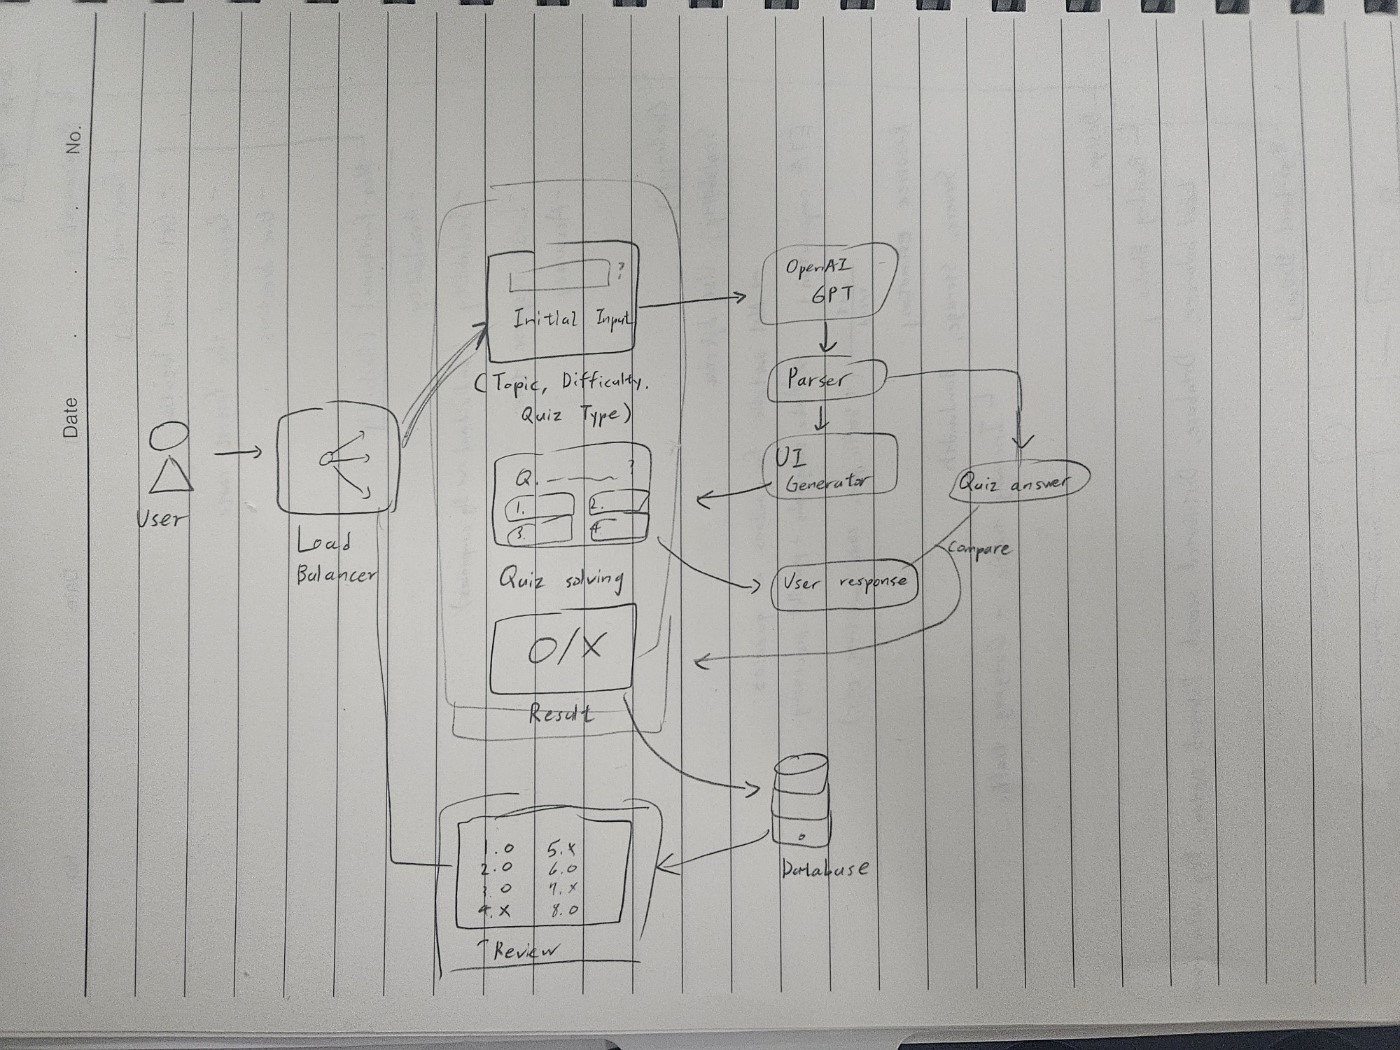 No.
Date
User
Load
Balancer
?
Initial Input
(Topic, Difficulty.
Quiz Type)
Q. ?
1. 2.
3. 4.
Quiz solving
O/X
Result
OpenAI
GPT
Parser
UI
Generator
Quiz answer
Compare
User response
Database
1. O 5. X
2. O 6. O
3. O 7. X
4. X 8. O
Review